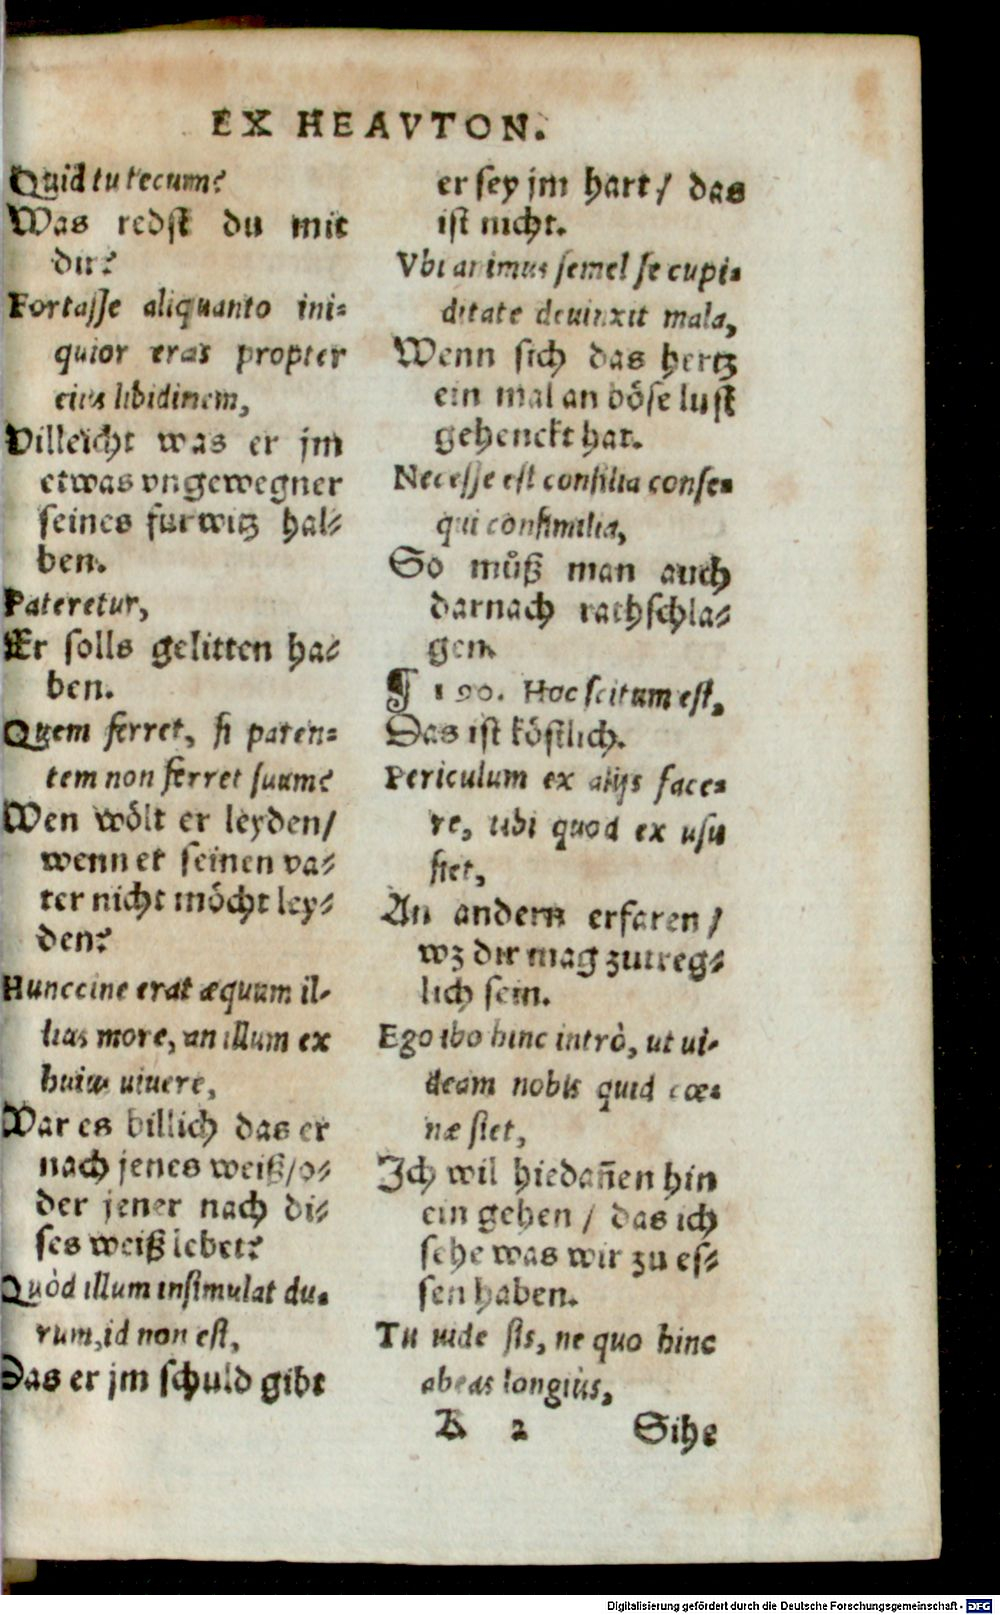 EX HEAVTON.
Quid tu tecum?
Was redst du mit
dir?
Fortasse aliquanto ini-
quior erat propter
eius libidinem,
Villeicht was er jm
etwas vngewegner
seines furwitz hal-
ben.
Pateretur,
Er solls gelitten ha-
ben.
Quem ferret, si paren-
tem non ferret suum?
Wen wölt er leyden/
wenn er seinen va-
ter nicht möcht ley-
den?
Hunccine erat æquum il-
lius more, an illum ex
huius uiuere,
War es billich das er
nach jenes weiß/o-
der jener nach di-
ses weiß lebet?
Quòd illum insimulat du-
rum, id non est,
Das er jm schuld gibt
er sey jm hart/ das
ist nicht.
Vbi animus semel se cupi-
ditate deuinxit mala,
Wenn sich das hertz
ein mal an böse lust
gehenckt hat.
Necesse est consilia conse-
qui consimilia,
So můß man auch
darnach rathschla-
gen.
¶ 190. Hoc scitum est,
Das ist köstlich.
Periculum ex alijs face-
re, tibi quod ex usu
siet,
An andern erfaren/
wz dir mag zutreg-
lich sein.
Ego ibo hinc intrò, ut ui-
deam nobis quid cœ-
næ siet,
Ich wil hiedañen hin
ein gehen/ das ich
sehe was wir zu es-
sen haben.
Tu uide sis, ne quo hinc
abeas longiùs,
K 2 Sihe
Digitalisierung gefördert durch die Deutsche Forschungsgemeinschaft - DFG